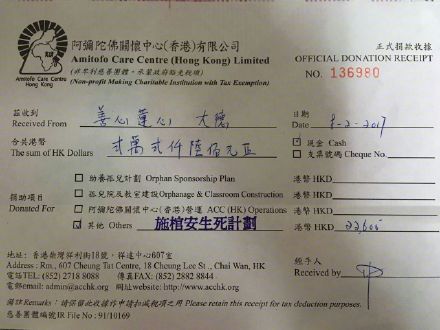 阿彌陀佛關懷中心(香港)有限公司
Amitofo Care Centre (Hong Kong) Limited
(非牟利慈善團體，承蒙政府豁免稅項)
(Non-profit Making Charitable Institution with Tax Exemption)
Amitofo Care Centre
Hong Kong
正式捐款收據
OFFICIAL DONATION RECEIPT
NO. 136980
茲收到
Received From 善心蓮心 大德
日期
Date 8-2-2017
合共港幣
The sum of HK Dollars 弍萬弍仟陸佰元正
現金 Cash
支票號碼 Cheque No.
捐助項目
Donated For
助養孤兒計劃 Orphan Sponsorship Plan 港幣 HKD
孤兒院及教室建設 Orphanage & Classroom Construction 港幣 HKD
阿彌陀佛關懷中心(香港)營運 ACC (HK) Operations 港幣 HKD
其他 Others 施棺安生死計劃 港幣 HKD 22,600
地址: 香港柴灣祥利街18號，祥達中心607室
Address : Rm., 607 Cheung Tat Centre, 18 Cheung Lee St., Chai Wan, HK
電話TEL: (852) 2718 8088 傳真FAX: (852) 2882 8844
電郵email: admin@acchk.org 網址http://www.acchk.org
經手人
Received by
備註Remarks : 請保留此收據作申請扣減稅項之用 Please retain this receipt for tax deduction purposes.
慈善團體編號IR File No : 91/10169